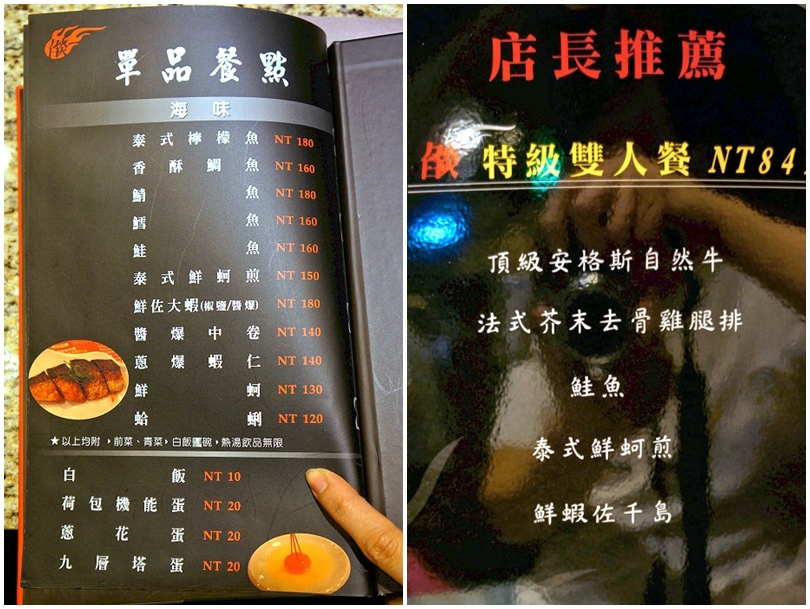 單品餐點
海味
泰式檸檬魚 NT 180
香酥鯛魚 NT 160
鯖魚 NT 180
鱈魚 NT 160
鮭魚 NT 160
泰式鮮蚵煎 NT 150
鮮佐大蝦(椒鹽/醬爆) NT 180
醬爆中卷 NT 140
蔥爆蝦仁 NT 140
鮮蚵 NT 130
蛤蜊 NT 120
★以上均附 ▸前菜、青菜▸白飯壹碗▸熱湯飲品無限
白飯 NT 10
荷包機能蛋 NT 20
蔥花蛋 NT 20
九層塔蛋 NT 20
店長推薦
特級雙人餐 NT841
頂級安格斯自然牛
法式芥末去骨雞腿排
鮭魚
泰式鮮蚵煎
鮮蝦佐千島